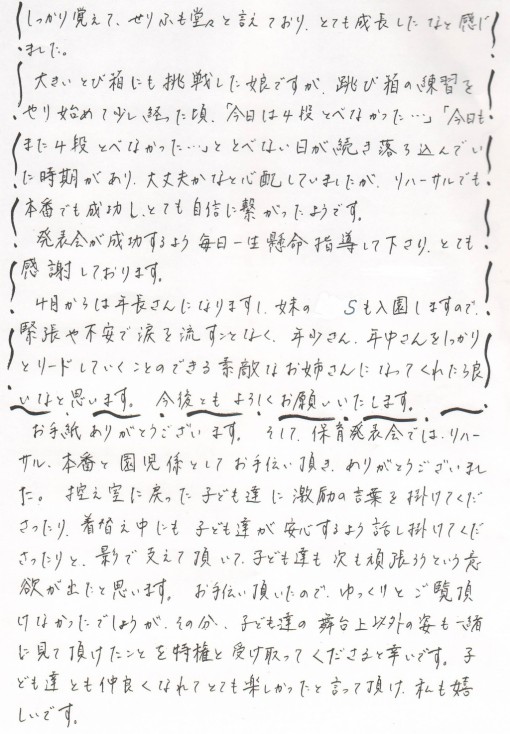 しっかり覚えて、せりふも堂々と言えており、とても成長したなと感じ
ました。
大きいとび箱にも挑戦した娘ですが、跳び箱の練習を
やり始めて少し経った頃、「今日は4段とべなかった…」「今日も
また4段とべなかった…」ととべない日が続き落ち込んでい
た時期があり、大丈夫かなと心配していましたが、リハーサルでも
本番でも成功し、とても自信に繋がったようです。
発表会が成功するよう毎日一生懸命指導して下さり、とても
感謝しております。
4月からは年長さんになりますし、妹の Sも入園しますので、
緊張や不安で涙を流すことなく、年少さん、年中さんをしっかり
とリードしていくことのできる素敵なお姉さんになってくれたら良
いなと思います。今後ともよろしくお願いいたします。
お手紙ありがとうございます。そして、保育発表会では、リハー
サル、本番と園児係としてお手伝い頂き、ありがとうございまし
た。控え室に戻った子ども達に激励の言葉を掛けてくだ
さったり、着替え中にも子ども達が安心するよう話し掛けてくだ
さったりと、影で支えて頂いて、子ども達も次も頑張ろうという意
欲が出たと思います。お手伝い頂いたので、ゆっくりとご覧頂
けなかったでしょうが、その分、子ども達の舞台上以外の姿も一緒
に見て頂けたことを特権と受け取ってくださると幸いです。子
ども達とも仲良くなれてとても楽しかったと言って頂け、私も嬉
しいです。